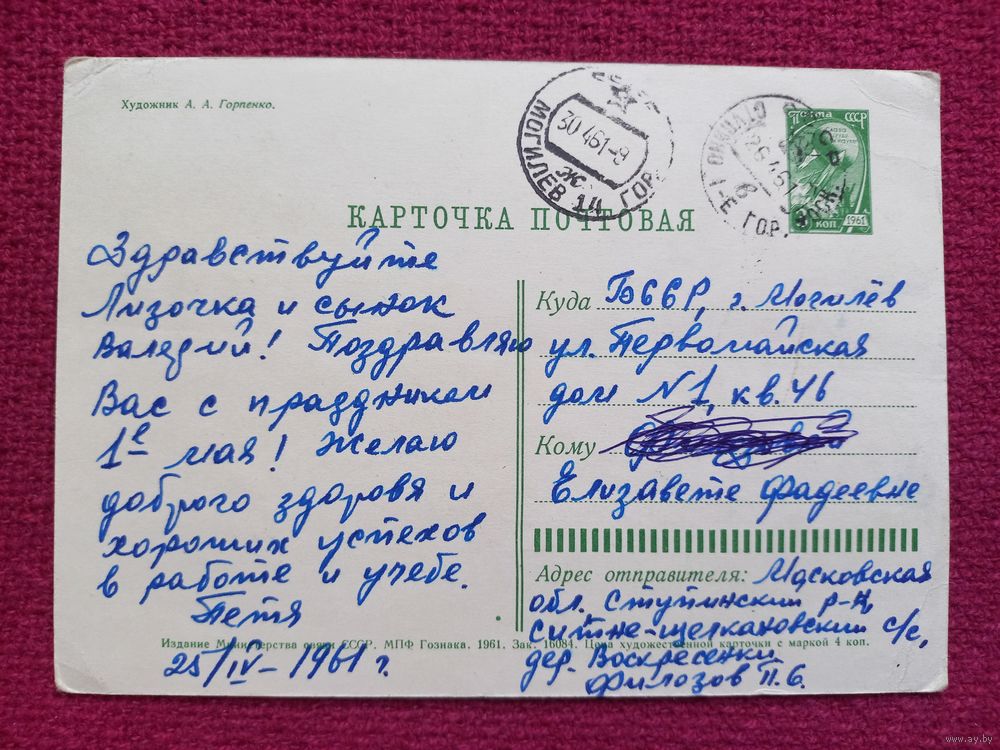 Художник А. А. Горпенко.
МОГИЛЕВ 14 ГОР.
30 4 61-8
ПОЧТА СССР
1961
КОП
КАРТОЧКА ПОЧТОВАЯ
Здравствуйте
Лизочка и сынок
Валерий! Поздравляю
Вас с праздником
1е мая! Желаю
доброго здоровя и
хороших успехов
в работе и учебе.
Петя
25/IV-1961 г.
Куда БССР, г. Могилёв
ул. Первомайская
дом № 1, кв. 46
Кому
Елизавете Фадеевне
Адрес отправителя: Московская
обл. Ступинский р-н,
Ситне-щелкановский с/с,
дер. Воскресенки
Филозов П. б.
Издание Министерства связи СССР. МПФ Гознака. 1961. Зак. 16084. Цена художественной карточки с маркой 4 коп.
www.ay.by